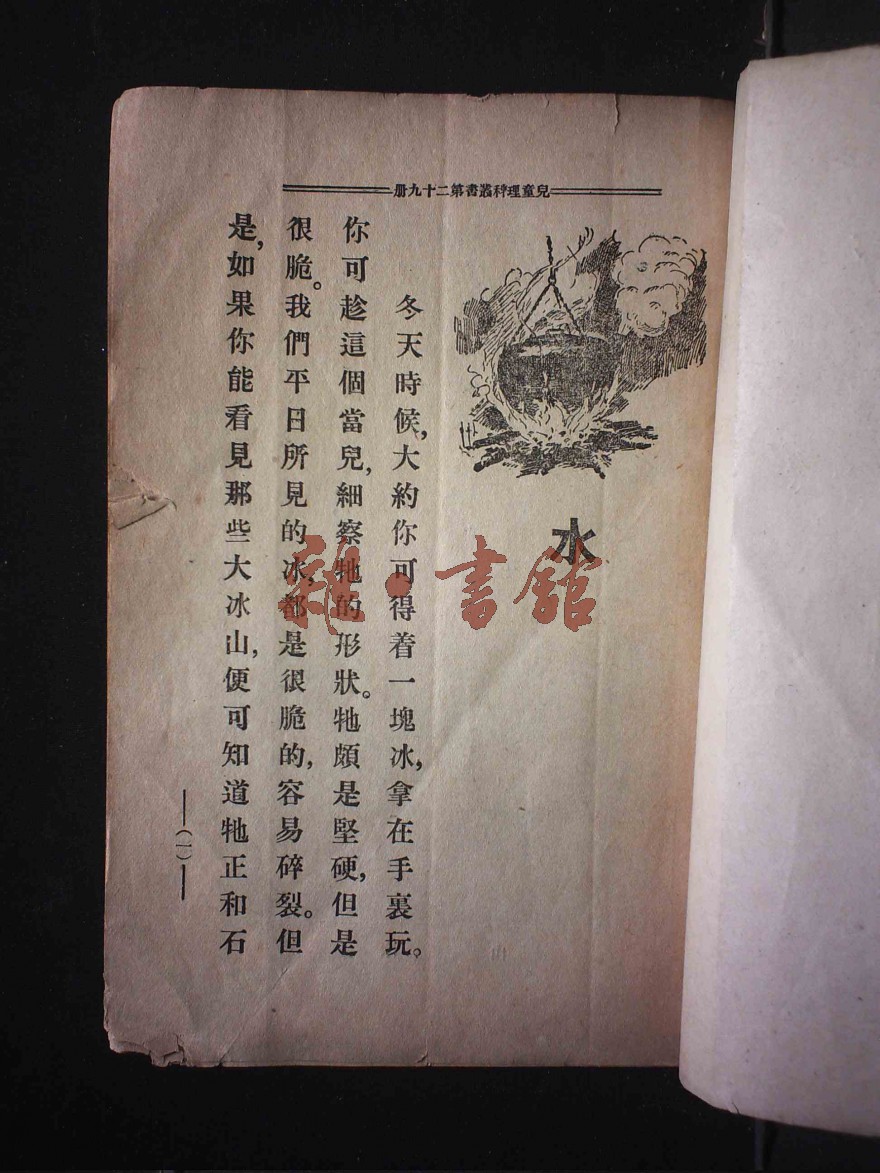 兒童理科叢書第二十九册
水
冬天時候,大約你可得着一塊冰,拿在手裏玩。
你可趁這個當兒,細察牠的形狀。牠頗是堅硬,但是
很脆。我們平日所見的冰,都是很脆的,容易碎裂。但
是,如果你能看見那些大冰山,便可知道牠正和石
(一)
雜·書館